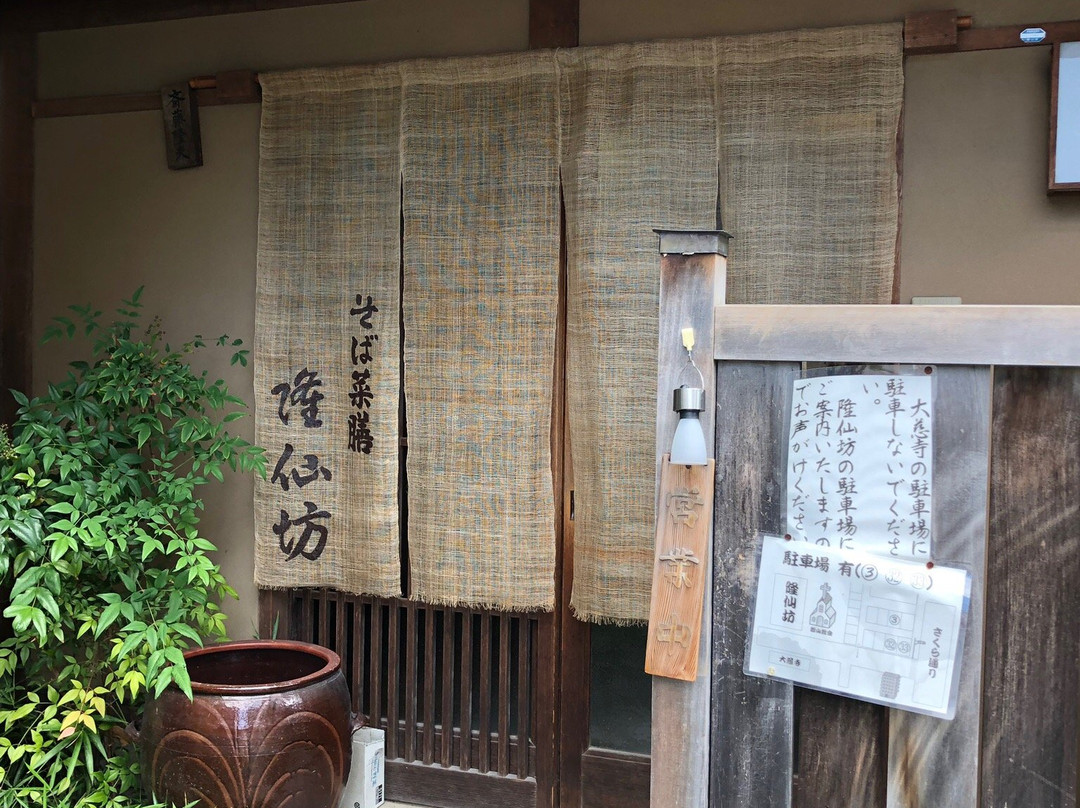 そば菜膳
隆仙坊
営業中
大慈寺の駐車場に
駐車しないでくださ
い。
隆仙坊の駐車場に
ご案内いたしますの
でお声がけください
駐車場 有(③ ㉜ ㉛)
隆仙坊
③
㉜㉝
さくら通り